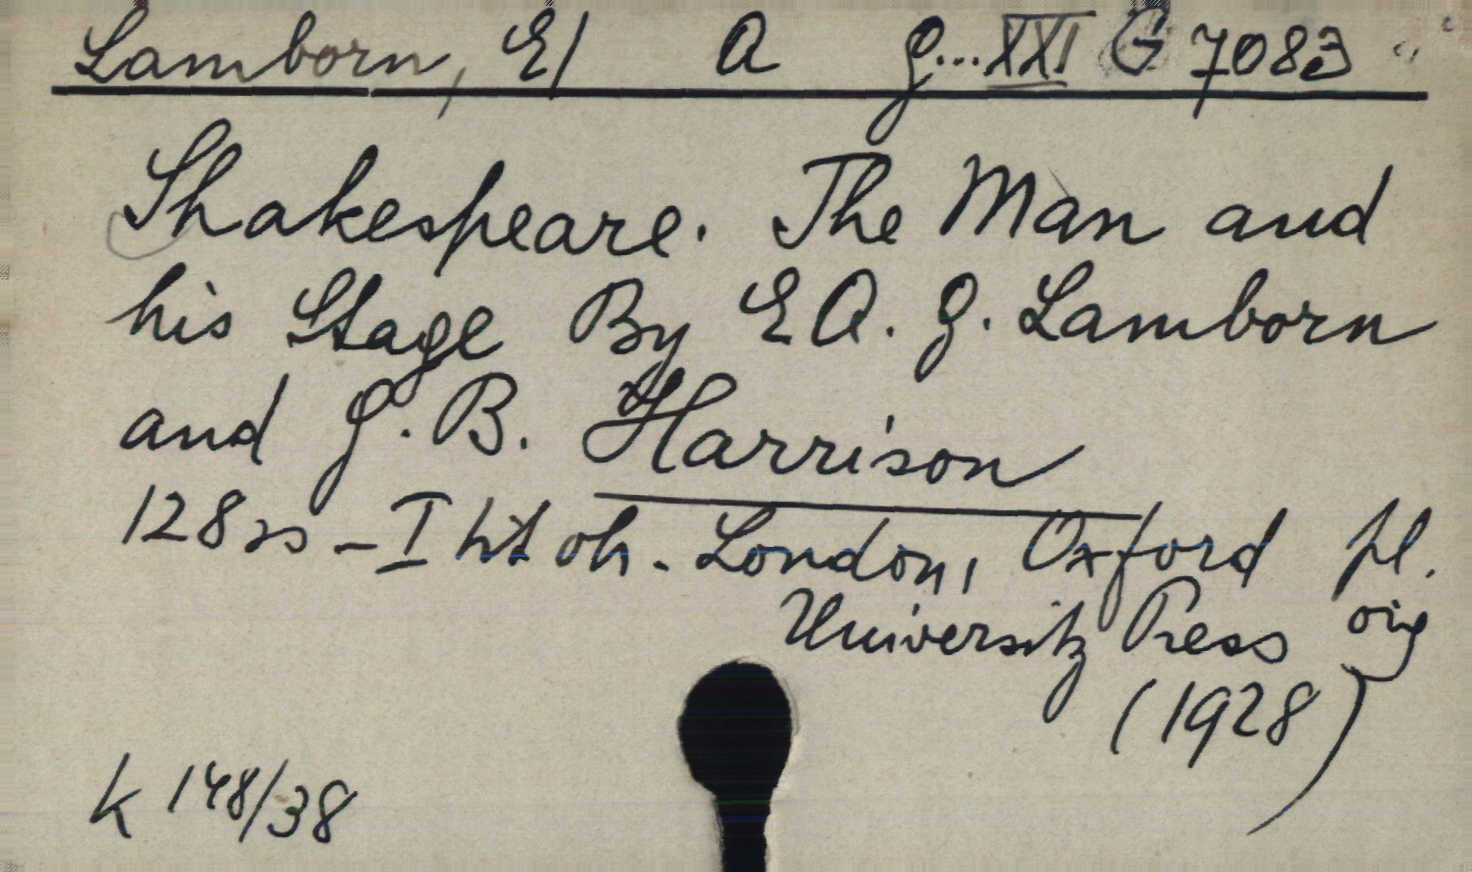 Lamborn, E/ A G... XXI G 7083
Shakespeare. The Man and
his Stage By E A. G. Lamborn
and G. B. Harrison
128 ss - I tit ob. London, Oxford pl.
University Press orig
(1928)
k 148/38